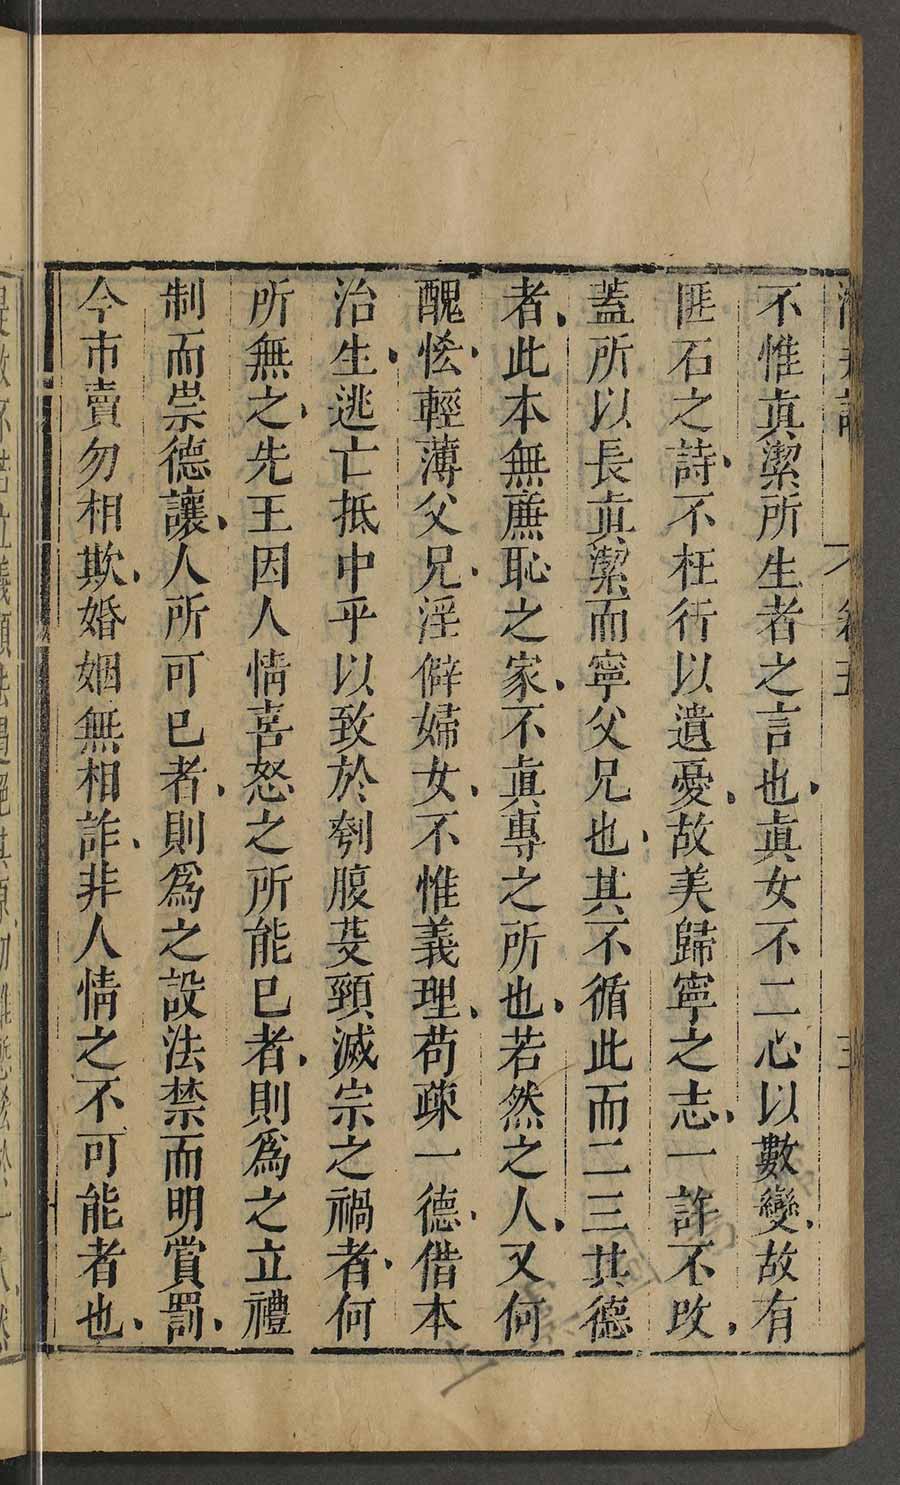 不惟眞潔所生者之言也眞女不二心以數變故有
匪石之詩不枉行以遺憂故美歸寧之志一許不改
蓋所以長眞潔而寧父兄也其不循此而二三其德
者此本無廉恥之家不眞專之所也若然之人又何
醜恡輕薄父兄淫僻婦女不惟義理苟疎一德借本
治生逃亡抵中乎以致於刳腹芟頸滅宗之禍者何
所無之先王因人情喜怒之所能已者則爲之立禮
制而崇德讓人所可已者則爲之設法禁而明賞罰
今市賣勿相欺婚姻無相詐非人情之不可能者也